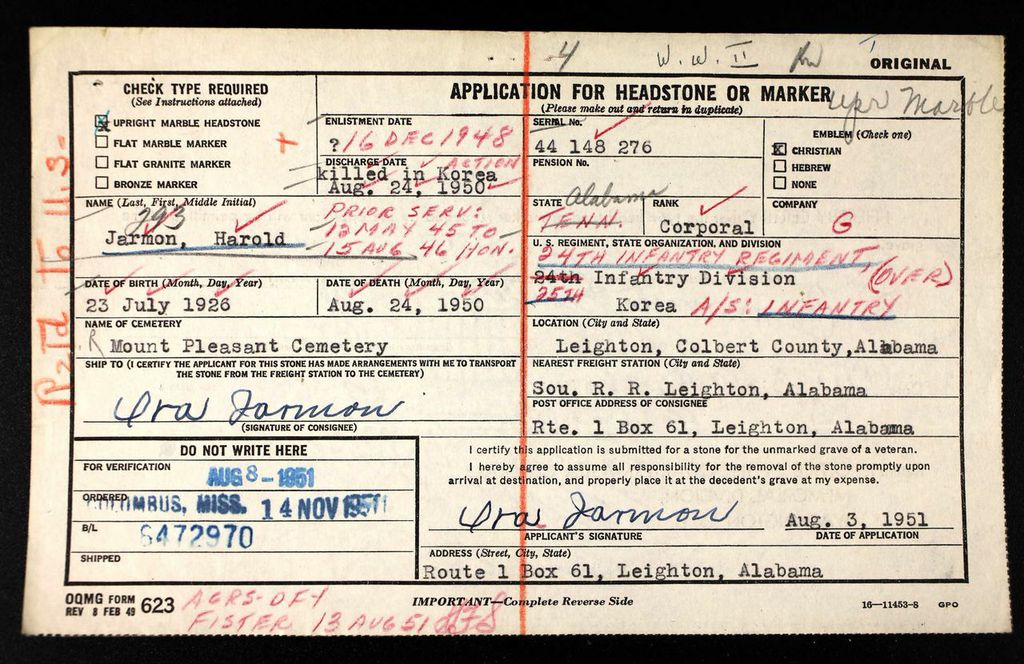 4 W.W. II ORIGINAL
CHECK TYPE REQUIRED
(See Instructions attached)
X UPRIGHT MARBLE HEADSTONE
FLAT MARBLE MARKER
FLAT GRANITE MARKER
BRONZE MARKER
APPLICATION FOR HEADSTONE OR MARKER
(Please make out and return in duplicate)
upr Marble
ENLISTMENT DATE
? 16 DEC 1948
DISCHARGE DATE ACTION
killed in Korea
Aug. 24, 1950
SERIAL No.
44 148 276
PENSION No.
EMBLEM (Check one)
X CHRISTIAN
HEBREW
NONE
NAME (Last, First, Middle Initial)
293
Jarmon, Harold
PRIOR SERV:
12 MAY 45 TO
15 AUG 46 HON.
STATE Alabama
TENN.
RANK
Corporal
COMPANY
G
U. S. REGIMENT, STATE ORGANIZATION, AND DIVISION
24TH INFANTRY REGIMENT, (OVER)
24th Infantry Division
25TH
Korea A/S: INFANTRY
DATE OF BIRTH (Month, Day, Year)
23 July 1926
DATE OF DEATH (Month, Day, Year)
Aug. 24, 1950
NAME OF CEMETERY
R Mount Pleasant Cemetery
LOCATION (City and State)
Leighton, Colbert County, Alabama
SHIP TO (I CERTIFY THE APPLICANT FOR THIS STONE HAS MADE ARRANGEMENTS WITH ME TO TRANSPORT
THE STONE FROM THE FREIGHT STATION TO THE CEMETERY)
Ora Jarmon
(SIGNATURE OF CONSIGNEE)
NEAREST FREIGHT STATION (City and State)
Sou. R. R. Leighton, Alabama
POST OFFICE ADDRESS OF CONSIGNEE
Rte. 1 Box 61, Leighton, Alabama
DO NOT WRITE HERE
FOR VERIFICATION
AUG 8 - 1951
ORDERED
COLUMBUS, MISS. 14 NOV 1951
B/L
6472970
SHIPPED
I certify this application is submitted for a stone for the unmarked grave of a veteran.
I hereby agree to assume all responsibility for the removal of the stone promptly upon
arrival at destination, and properly place it at the decedent's grave at my expense.
Ora Jarmon Aug. 3, 1951
APPLICANT'S SIGNATURE DATE OF APPLICATION
ADDRESS (Street, City, State)
Route 1 Box 61, Leighton, Alabama
OQMG FORM
REV 8 FEB 49 623
AGRS-DFY
FISTER 13 AUG 51
IMPORTANT—Complete Reverse Side
16—11453-8 GPO